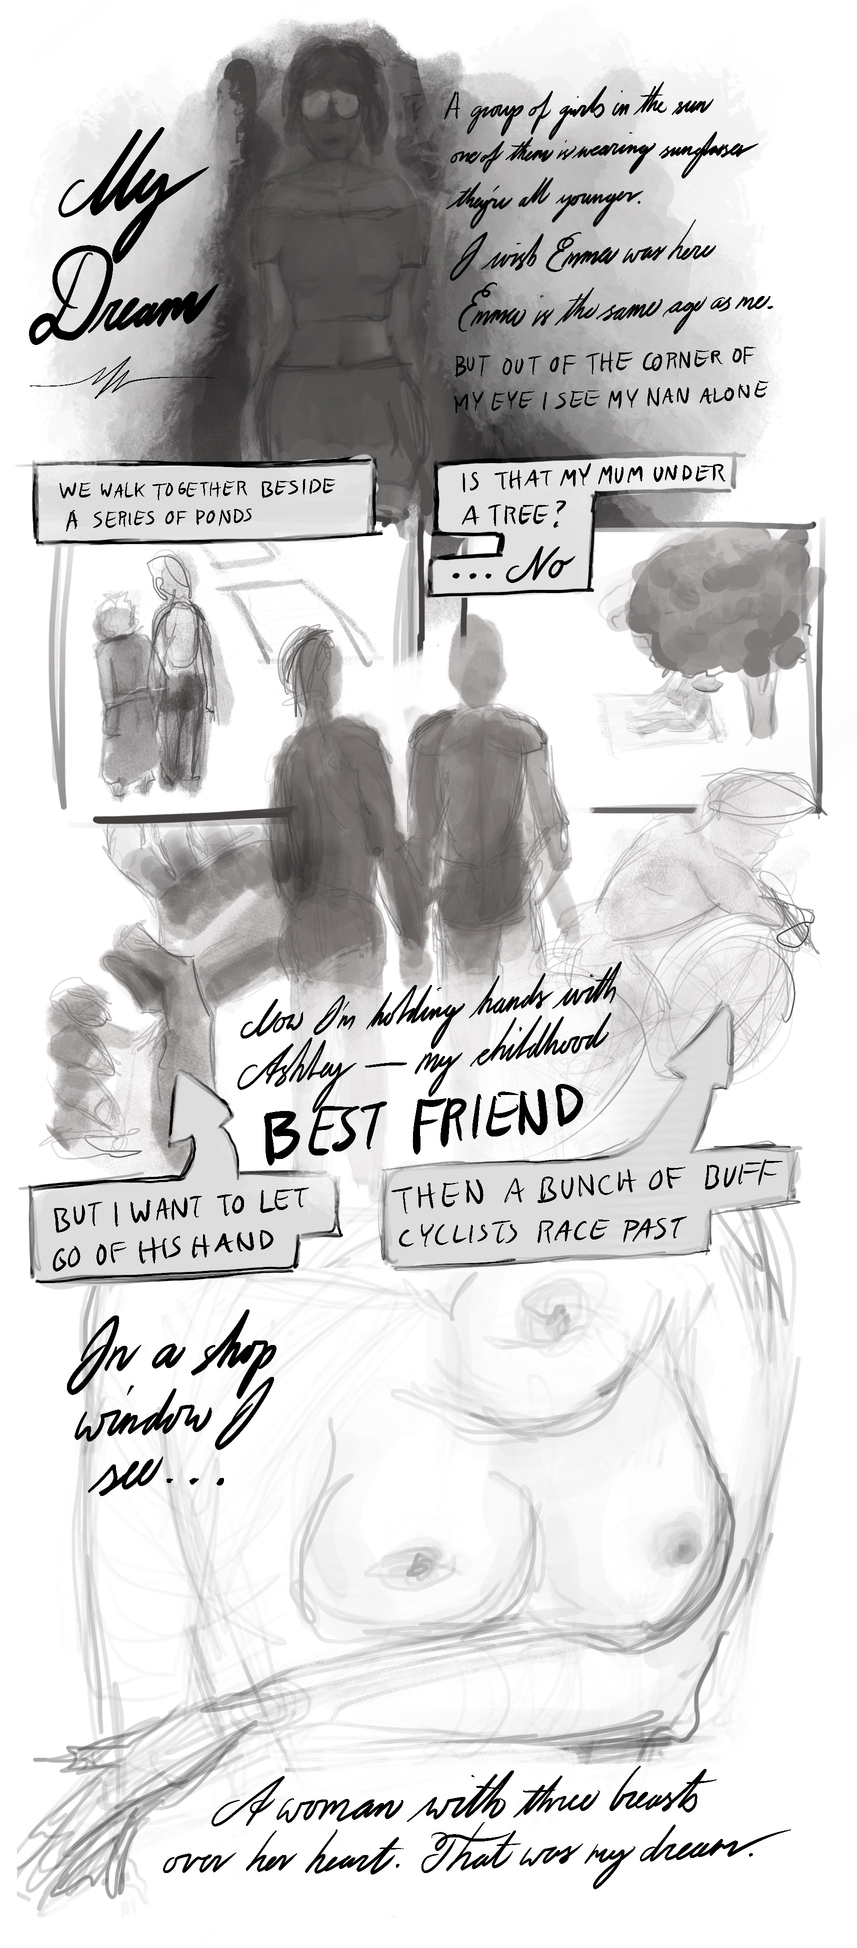 My
Dream
A group of girls in the sun
one of them is wearing sunglasses
they're all younger.
I wish Emma was here
Emma is the same age as me.
BUT OUT OF THE CORNER OF
MY EYE I SEE MY NAN ALONE
WE WALK TOGETHER BESIDE
A SERIES OF PONDS
IS THAT MY MUM UNDER
A TREE?
... No
Now I'm holding hands with
Ashley — my childhood
BEST FRIEND
BUT I WANT TO LET
GO OF HIS HAND
THEN A BUNCH OF BUFF
CYCLISTS RACE PAST
In a shop
window I
see...
A woman with three breasts
over her heart. That was my dream.